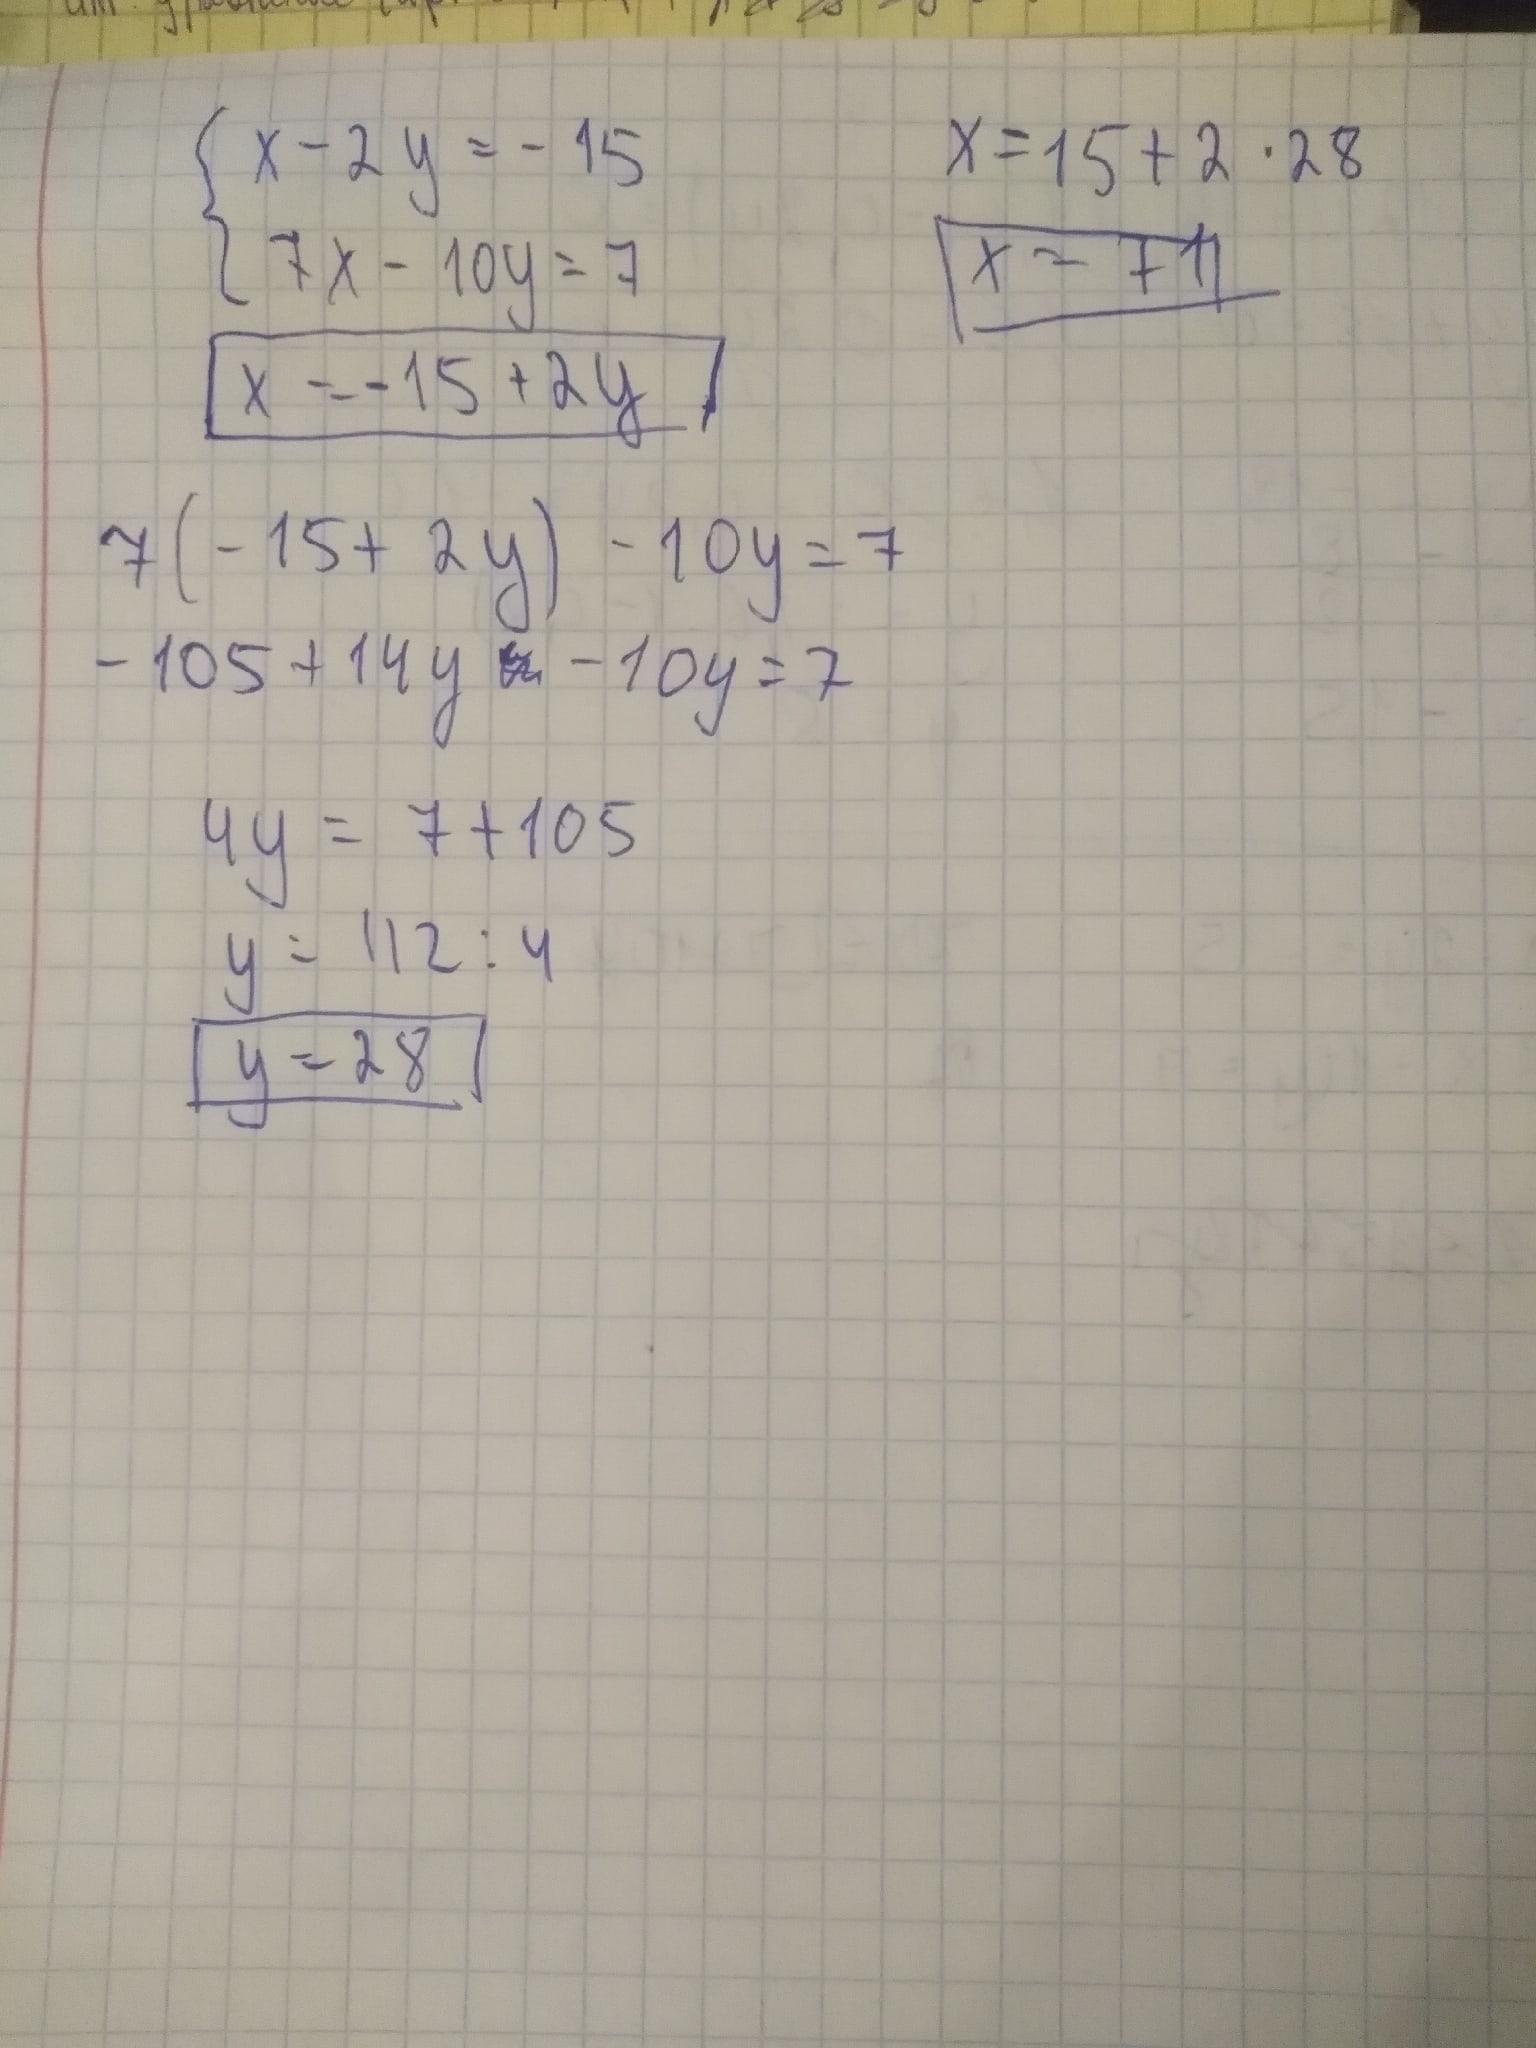 x - 2y = - 15
7x - 10y = 7
x = - 15 + 2y
7(- 15 + 2y) - 10y = 7
- 105 + 14y - 10y = 7
4y = 7 + 105
y = 112 : 4
y = 28
x = 15 + 2 · 28
x = 71